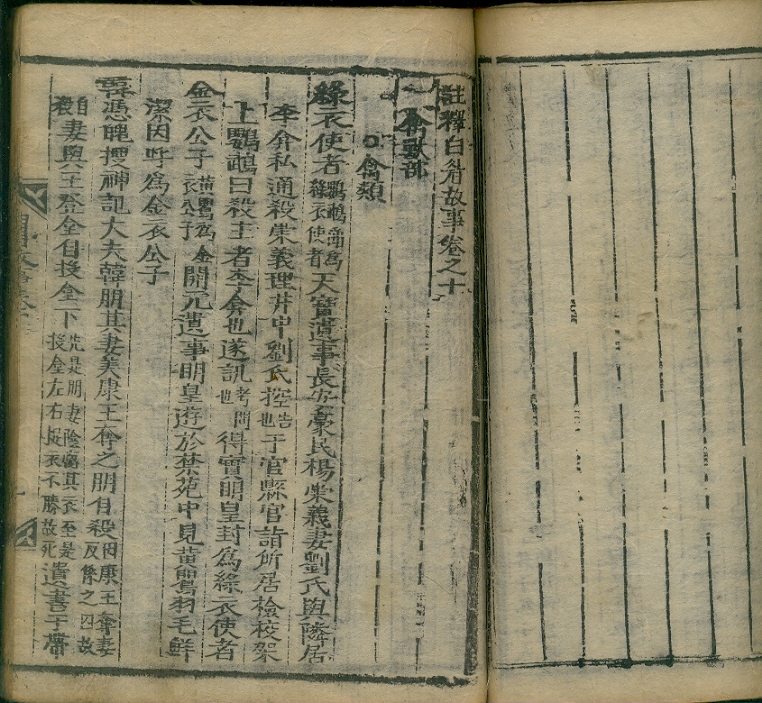 註釋白眉故事卷之十
禽獸部
○禽類
綠衣使者 鸚鵡謂爲綠衣使者 天寶遺事長安豪民楊崇義妻劉氏與隣居
李弇私通殺崇義埋井中劉氏控告也于官縣官詣所居檢校架
上鸚鵡曰殺主者李弇也遂訊考問也得實明皇封爲綠衣使者
金衣公子 黃鸎爲金衣公子 開元遺事明皇遊於禁苑中見黃鸎羽毛鮮
潔因呼爲金衣公子
韓憑魄搜神記大夫韓朋其妻美康王奪之朋自殺因康王奪妻反怨之囚故
自殺妻與王登台自投台下先是朋妻陰腐其衣至是投台左右捉衣不勝故死遺書于帶